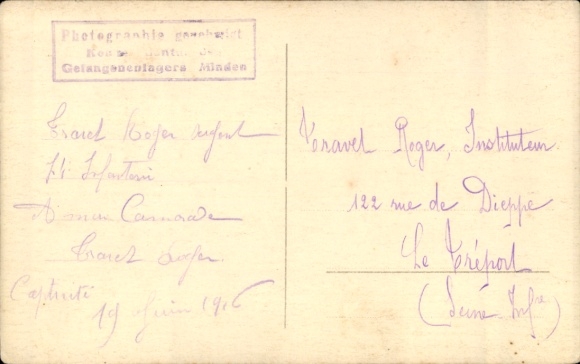 Photographie genehmigt
Kommandantur des
Gefangenenlagers Minden
Roger sergent
Infanterie
A mon Camarade
Roger
Captivité
19 Juin 1916
Roger, Instituteur
122 rue de Dieppe
Le Tréport
(Seine-Infre)